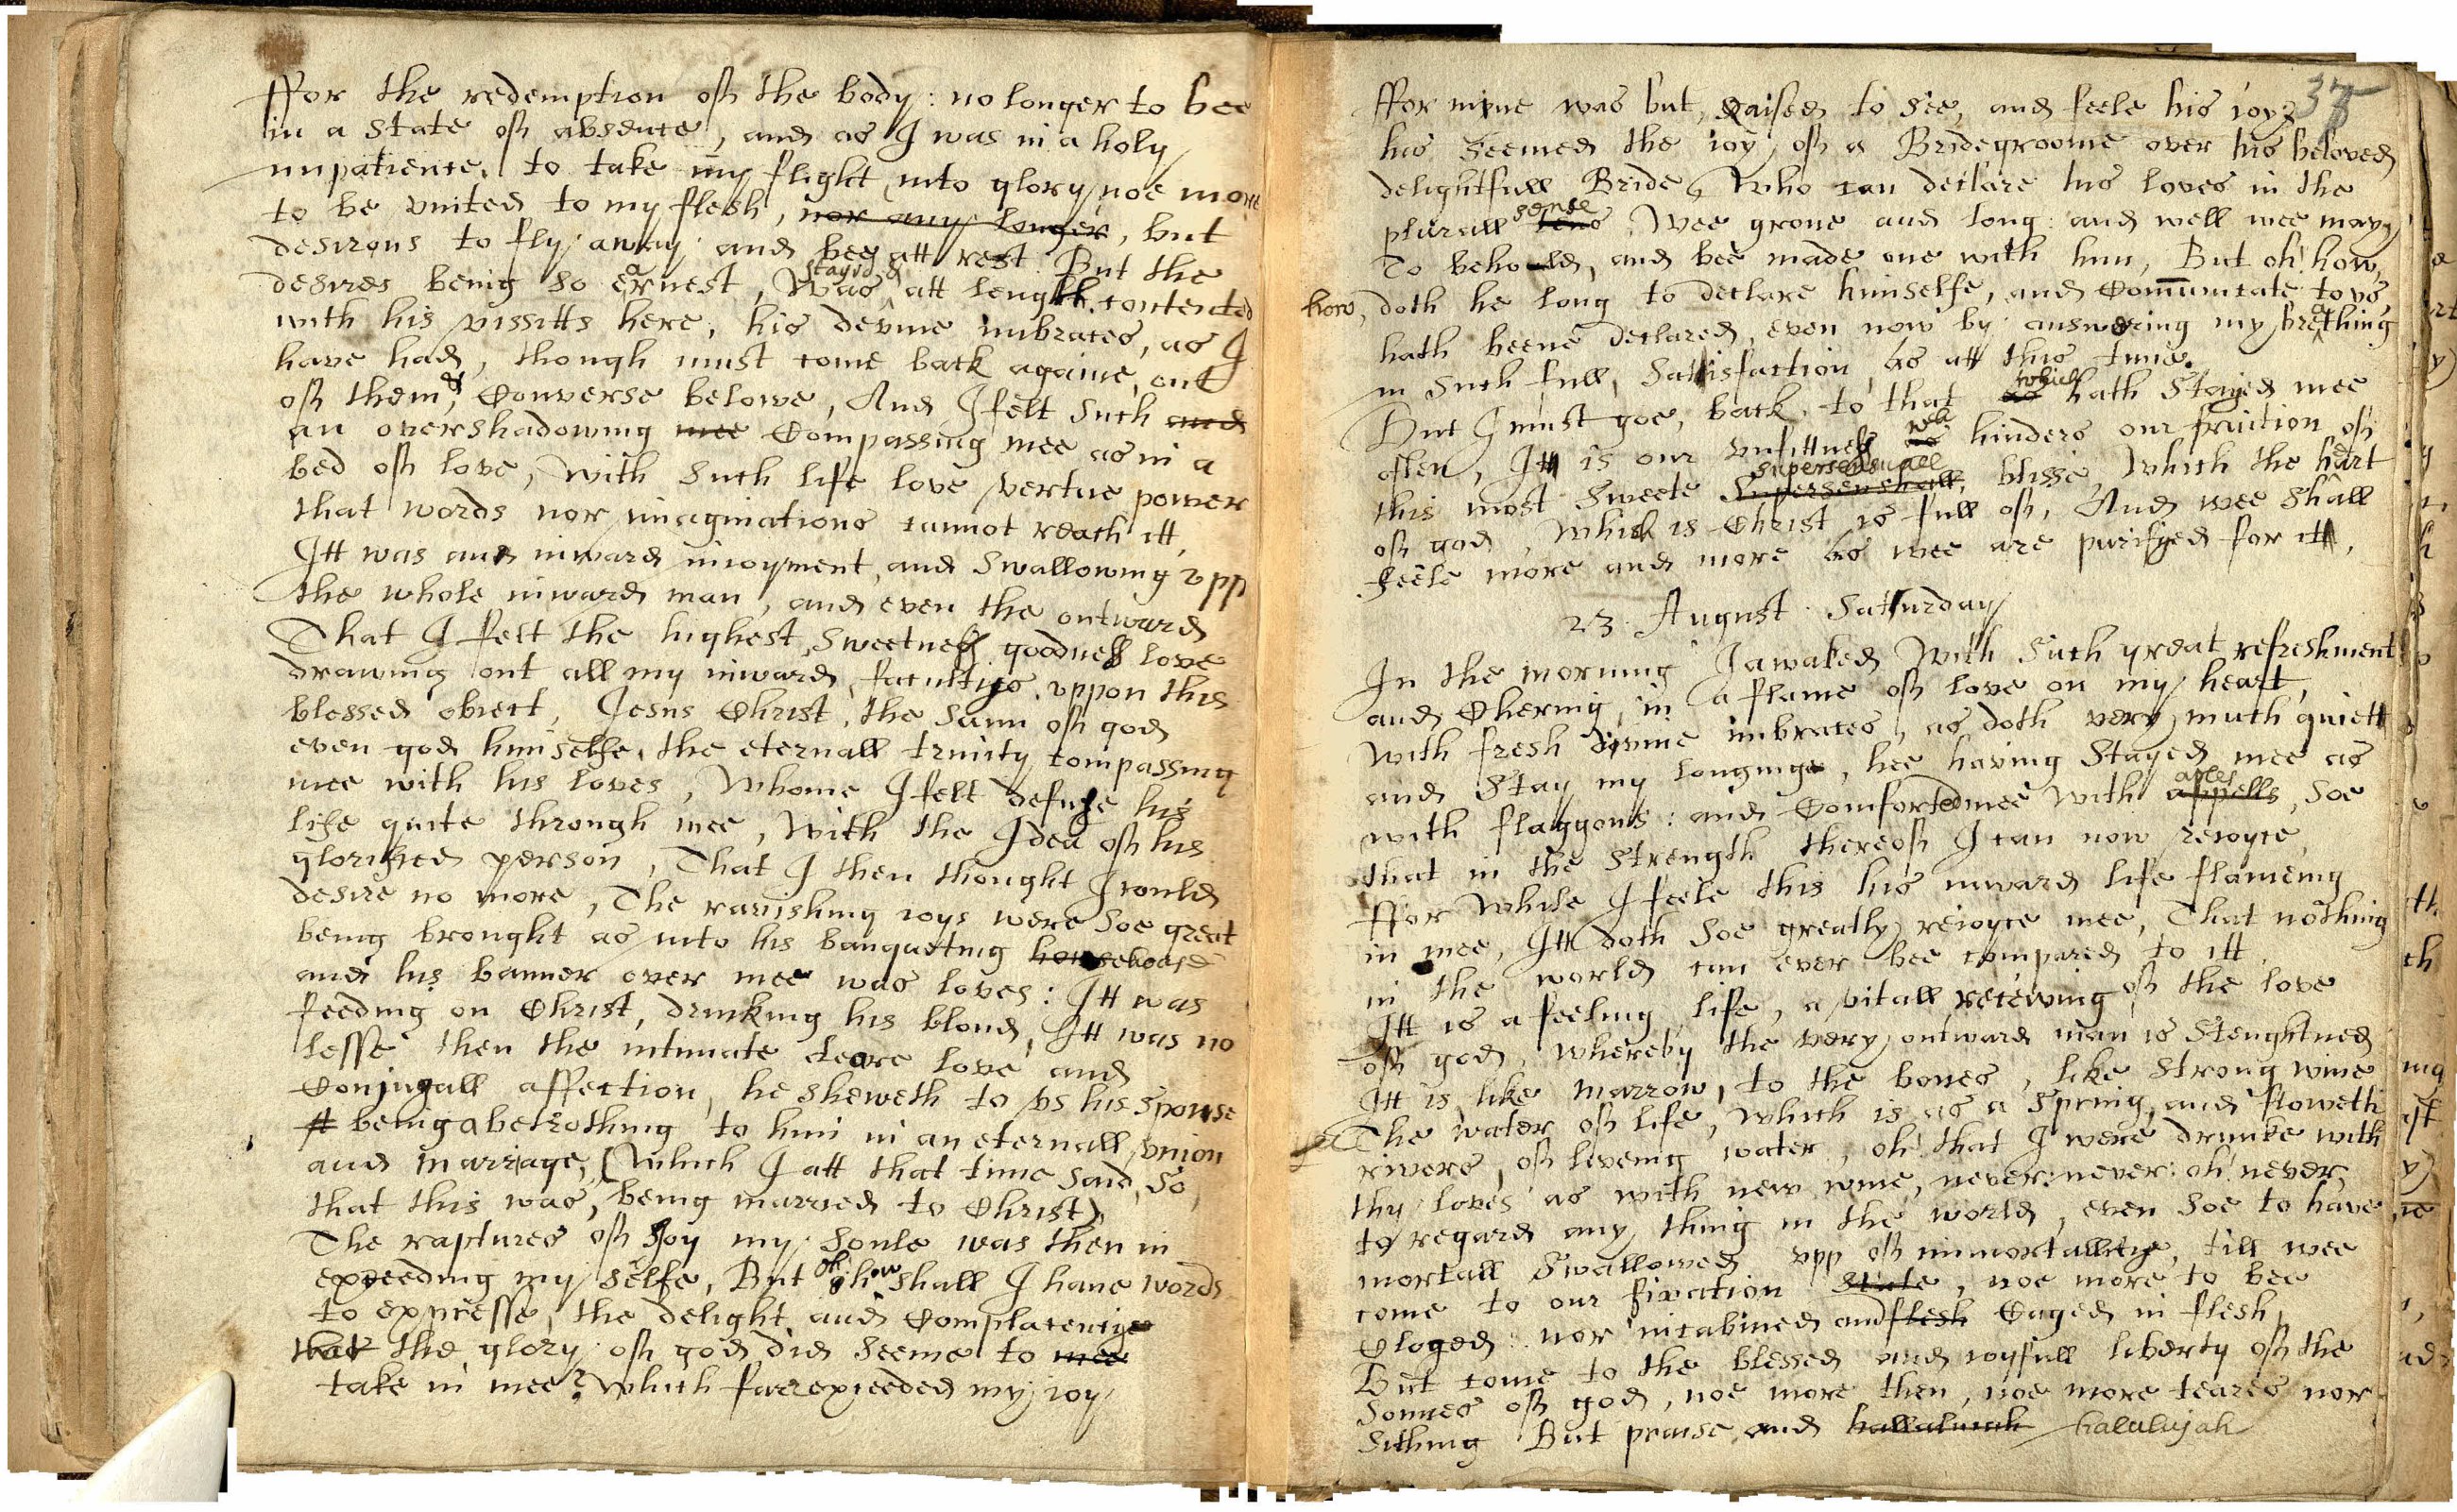 ffor the redemption off the body: no longer to bee
in a state off absence, and as I was in a holy
impatience, to take my flight into glory noe more
to be united to my flesh, nor any longer, but
desirous to fly away and bee att rest But the
desires being so earnest, Was stayed & att length contented
with his vissitts here, his devine imbraces, as I
have had, though must come back againe, out
off them, & Converse belowe, And I felt such and
an overshadowing mee Compassing mee as in a
bed off love, With such life love vertue power
that words nor imaginations cannot reach itt,
Itt was and inward injoyment, and swallowing upp
the whole inward man, and even the outward
That I felt the highest sweetness goodness love
drawing out all my inward facultyes uppon this
blessed obiect, Jesus Christ, the sunn off god
even god himselfe, the eternall trinity compassing
mee with his loves, Whome I felt defuse his
life quite through mee, With the Idea off his
glorifited person, That I then thought I could
desire no more, The ravishing ioys were soe great
being brought as into his banqueting house
and his banner over mee was loves: Itt was
feeding on Christ, drinking his bloud, Itt was no
lesse then the intimate deare love and
Conjugall affection, he sheweth to us his spouse
tt being a betrothing to him in an eternall union
and marriage, (Which I att that time said, so
that this was, being married to Christ)
The raptures off Joy my soule was then in
exceeding my selfe, But oh how shall I have words
to expresse, the delight and Complacencye
that the glory off god did seeme to mee
take in mee? Which farr exceeded my ioy
37
ffor mine was but, Raised to see, and feele his ioy
his seemed the ioy off a Bridegroome over his beloved
delightfull Bride, Who can declare his loves in the
plurall sens sense, Wee grone and long and well wee may
To behould, and bee made one with him, But oh! how,
how, doth he long to declare himselfe, and Comunicate to us
hath beene declared, even now by answering my breathing
in such full, Sattisfaction, As att this time.
But I must goe, back to that as which hath stayed mee
often, Itt is our unfittness as wch hinders our fruition off
this most sweete supersenshall supersensuall blisse, Which the heart
off god, Which is Christ is full off, And wee shall
feele more and more As wee are purifyed for itt,
23 August Satturday
In the morning I awaked With such great refreshment
and Chering, in a flame off love on my heart,
With fresh divine imbraces, as doth very much quiett
and stay my longings, hee having stayed mee as
with flaggons: and Comforted mee with appells aples, soe
that in the strength thereoff I can now reioyce,
ffor While I feele this his inward life flameing
in mee, Itt doth soe greatly reioyce mee, That nothing
in the world can ever bee compared to itt
Itt is a feeling life, a vitall receiving off the love
off god, whereby the very outward man is strenghtned
Itt is like marrow, to the bones, like strong wine
The water off life, Which is as a spring, and floweth
rivers, off liveing water, oh! that I were drunke with
thy loves as with new wine, never: never: oh! never,
to regard any thing in the world, even soe to have
mortall swallowed upp off immortallitye, till wee
come to our fixation state, noe more to bee
Cloged: nor incabined and flesh Caged in flesh,
But come to the blessed and ioyfull liberty off the
sonnes off god, noe more then, noe more teares nor
sithing But praise and hallaluiah halulujah